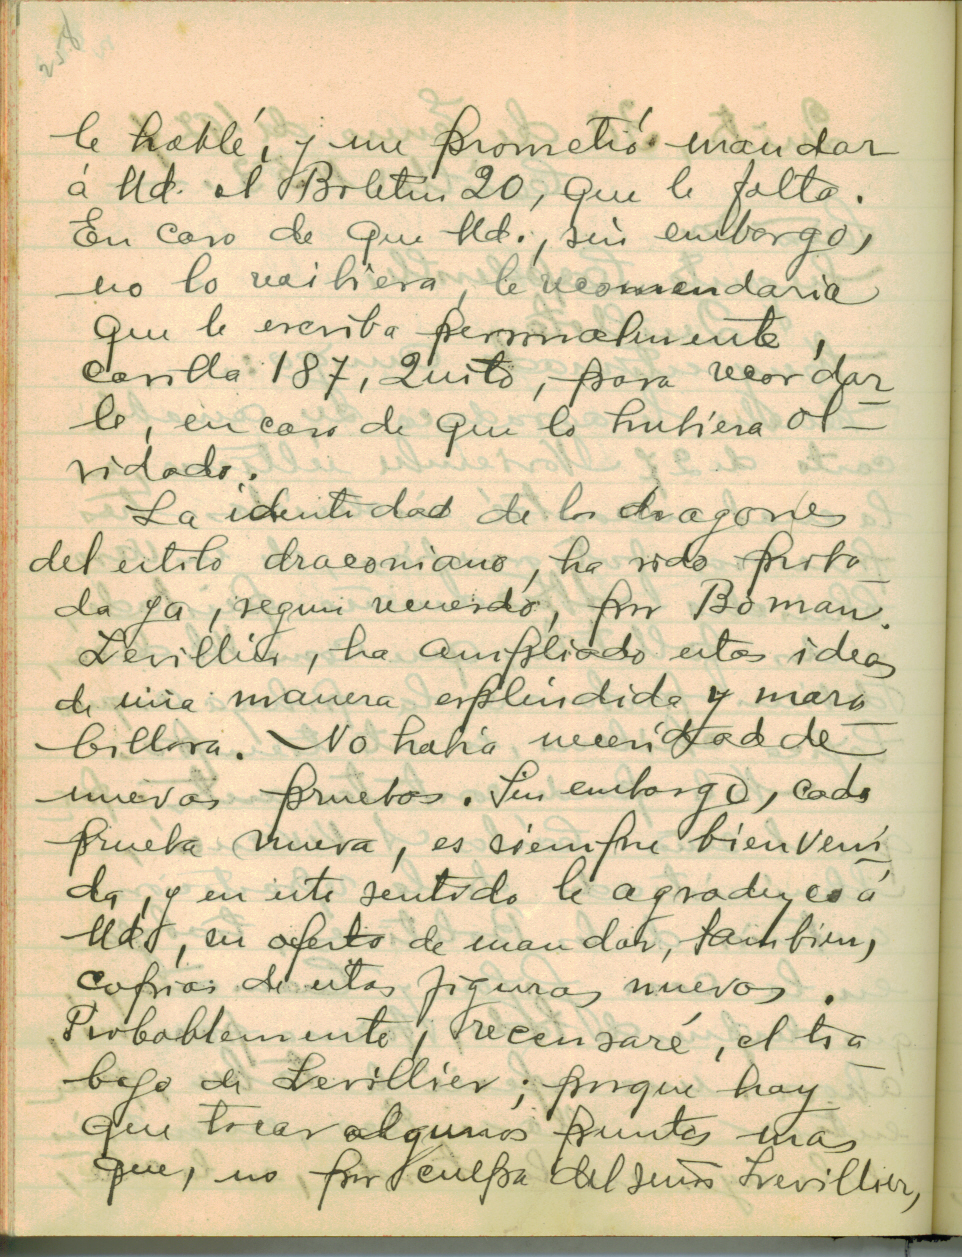 258
le hablé, y me prometió mandar
á Ud. el Boletin 20, que le falta.
En caso de que Ud., sin embargo,
no lo recibiera, le recomendaria
que le escriba personalmente,
casilla 187, Quito, para recordar
le, en caso de que lo hubiera ol-
vidado.
La identidad de los dragones
del estilo draconiano, ha sido proba
da ya, segun recuerdo, por Boman.
Levillier, ha ampliado estas ideas
de una manera espléndida y mara
billosa. No habia necesidad de
nuevas pruebas. Sin embargo, cada
prueba nueva, es siempre bienveni
da, y en este sentido le agradezco á
Ud., su oferta de mandar, tambien,
copias de estas figuras nuevas.
Probablemente, recensaré, el tra
bajo de Levillier; porque hay
que tocar algunos puntos mas
que, no por culpa del señor Levillier,